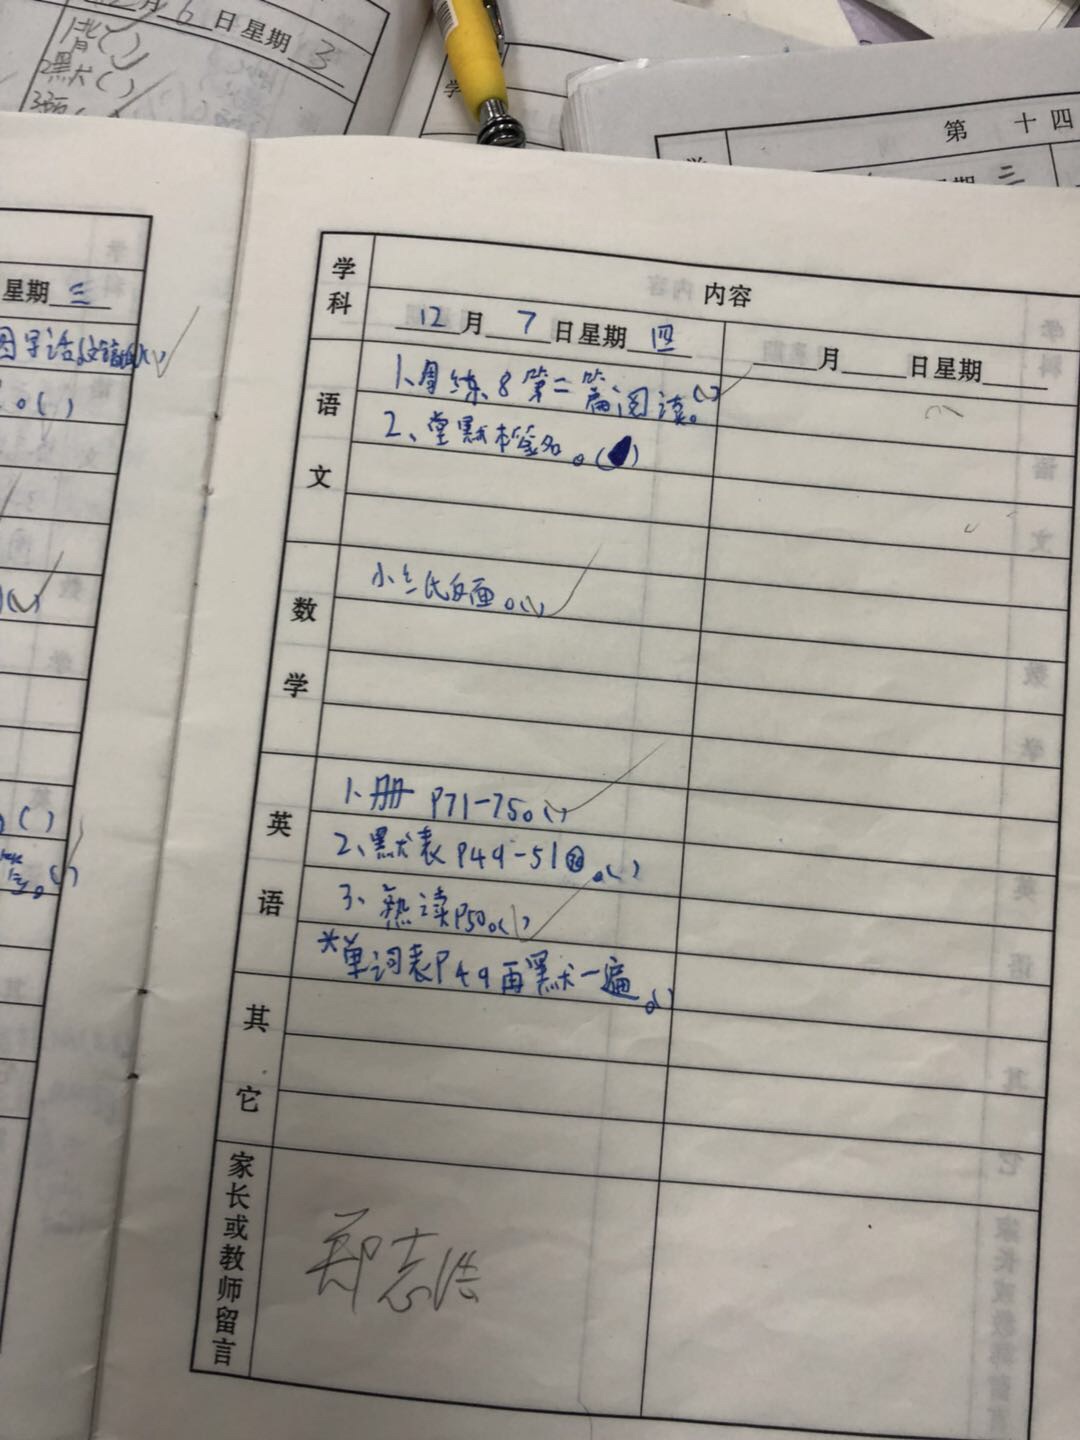 月6日星期3
背( )
2默( )
学
第 十四
学
星期三
星期三
。( )
( )
( )
学科
内容
12月7日星期四
月 日星期
语文
1、周练8第二篇阅读。( )
2、堂默本签名。( )
数学
反面。( )
英语
1、册 P71-75。( )
2、默表P49-51 。( )
3、熟读P50。( )
*单词表P49再默一遍。( )
其它
家长或教师留言
郑志浩